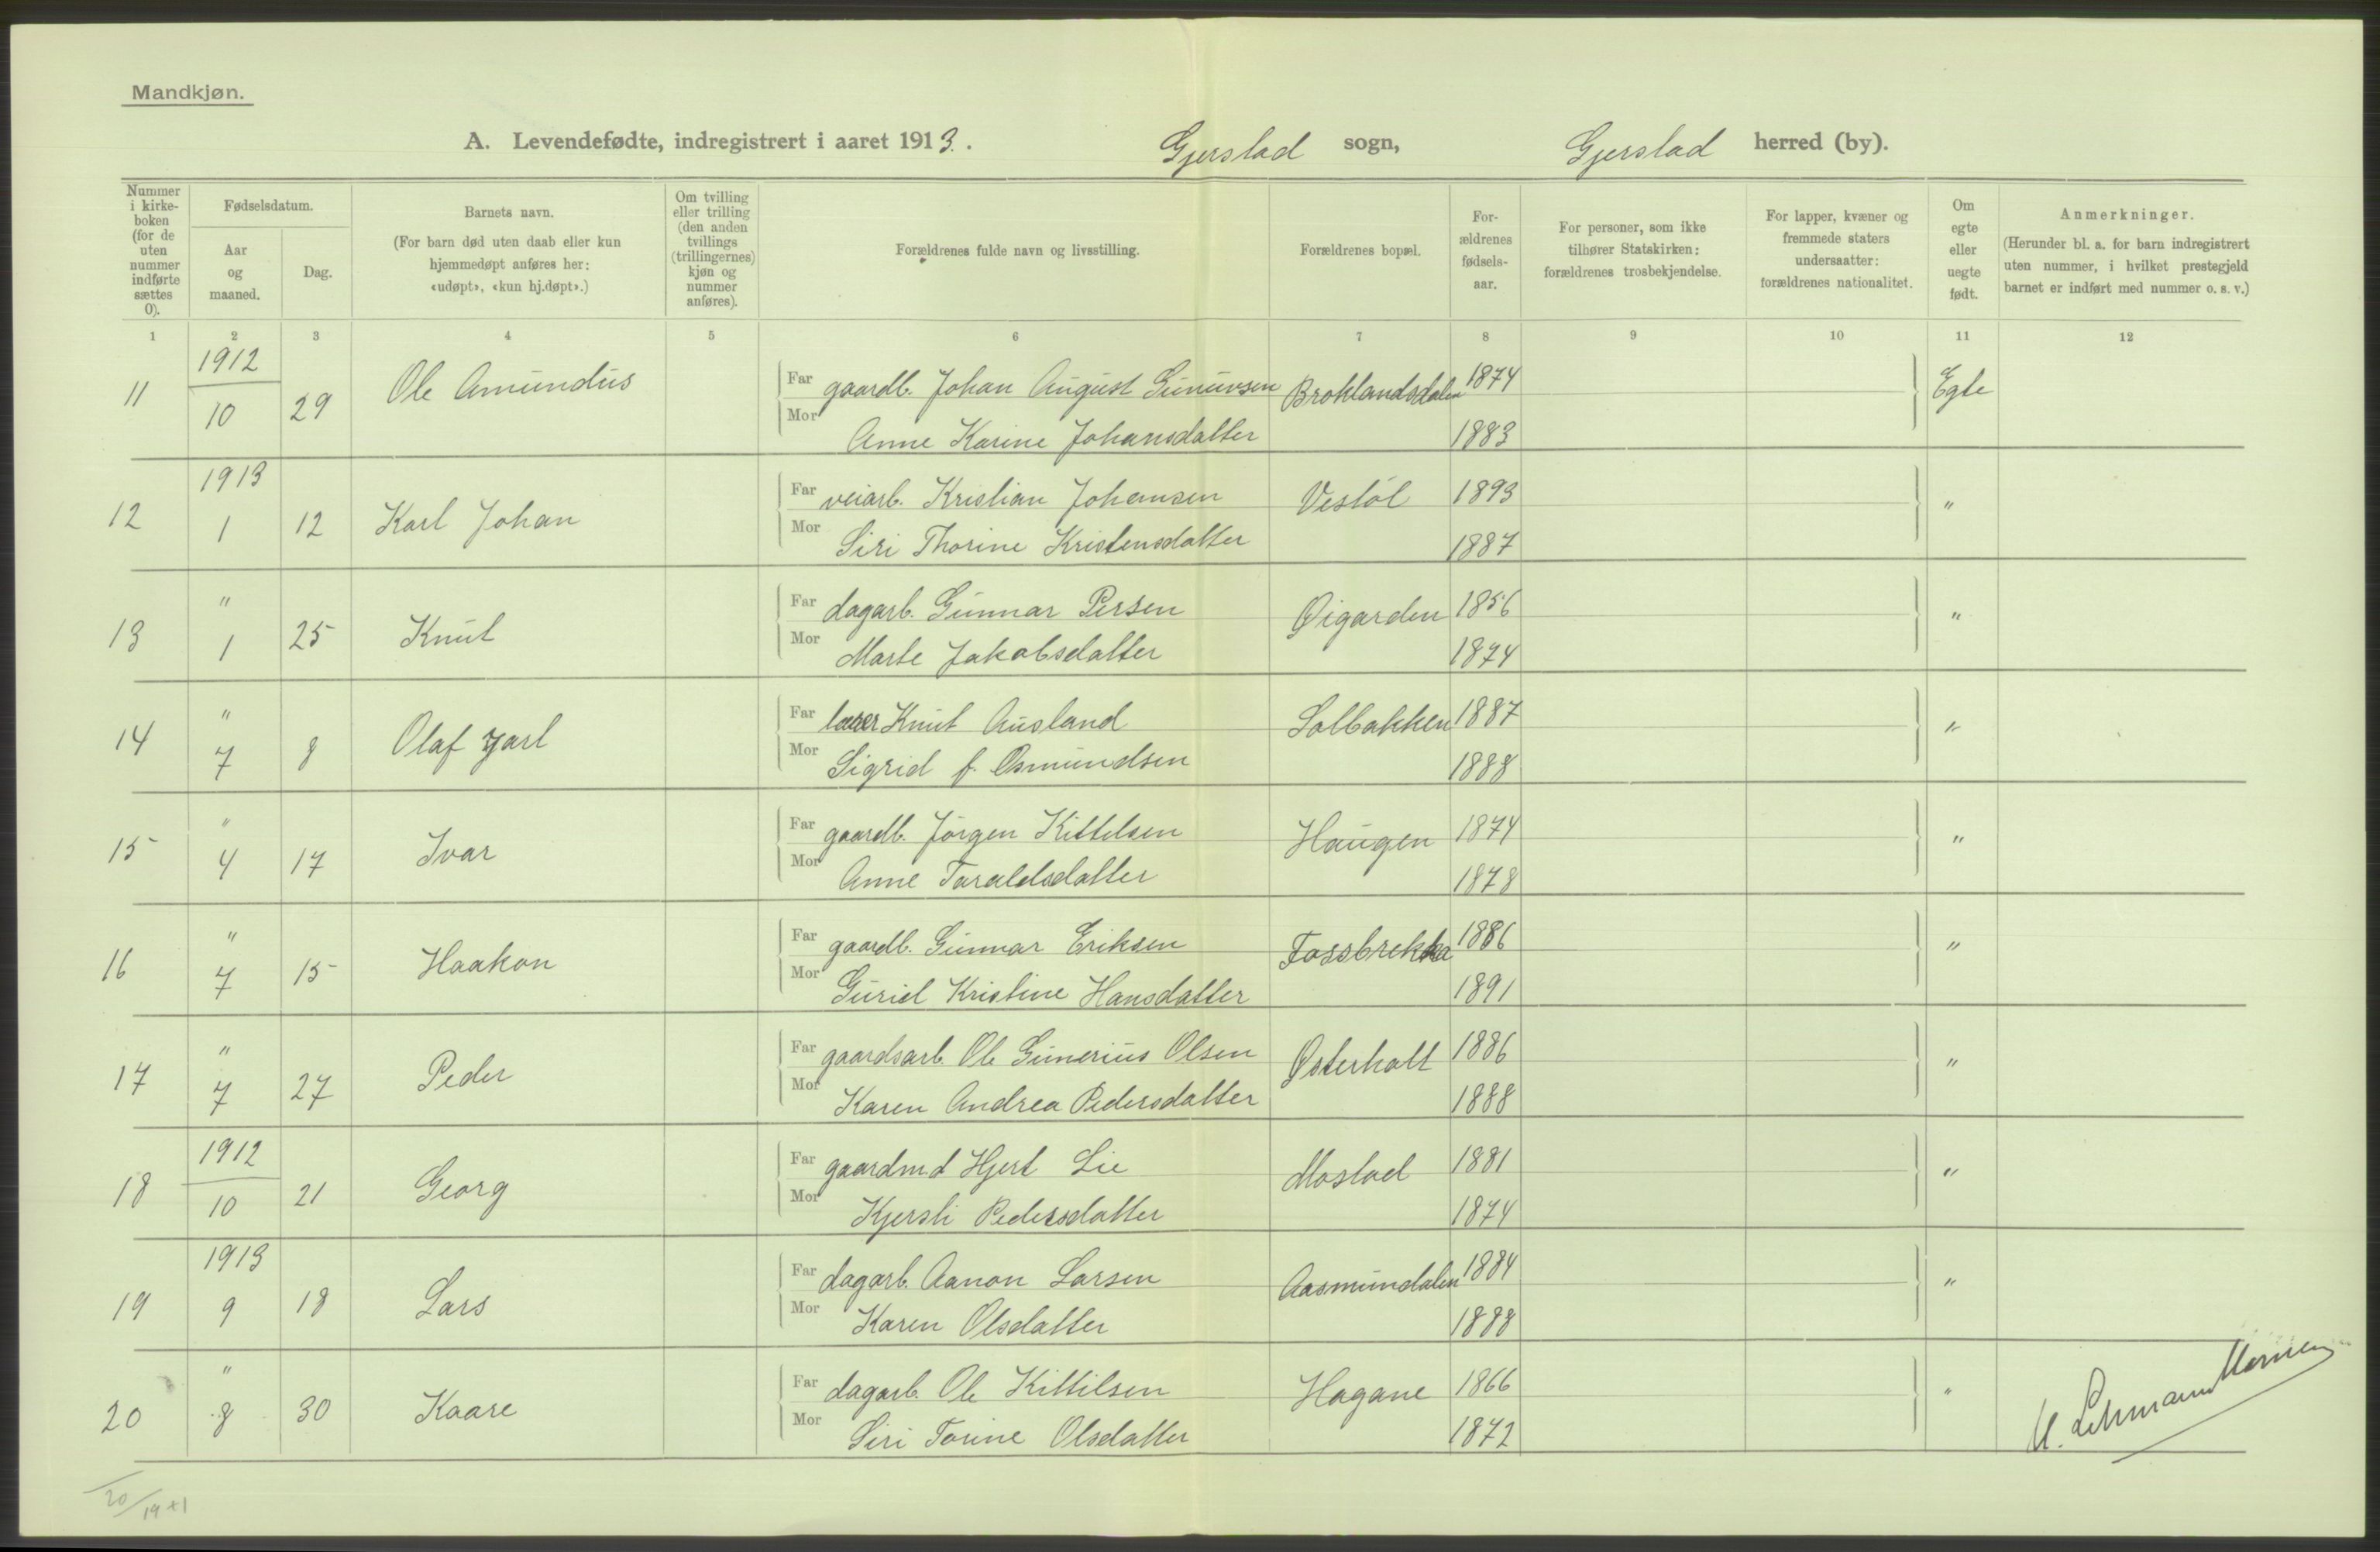 Mandkjøn.
A. Levendefødte, indregistrert i aaret 1913. Gjerstad sogn, Gjerstad herred (by).
Nummer i kirkeboken (for de uten nummer indførte sættes 0).
Fødselsdatum.
Aar og maaned.
Dag.
Barnets navn.
(For barn død uten daab eller kun hjemmedøpt anføres her: «udøpt», «kun hj.døpt».)
Om tvilling eller trilling (den anden tvillings (trillingernes) kjøn og nummer anføres).
Forældrenes fulde navn og livsstilling.
Forældrenes bopæl.
Forældrenes fødselsaar.
For personer, som ikke tilhører Statskirken: forældrenes trosbekjendelse.
For lapper, kvæner og fremmede staters undersaatter: forældrenes nationalitet.
Om egte eller uegte født.
Anmerkninger.
(Herunder bl. a. for barn indregistrert uten nummer, i hvilket prestegjeld barnet er indført med nummer o. s. v.)
1 2 3 4 5 6 7 8 9 10 11 12
11 1912 10 29 Ole Amundus Far gaardb. Johan August Broklandsdalen 1874 Egte
Mor Anne Karine Johansdatter 1883
12 1913 1 12 Karl Johan Far veiarb. Kristian Johansen Vestøl 1893 "
Mor Siri Thorine Kristensdatter 1887
13 " 1 25 Knut Far dagarb. Gunnar Persen Øigarden 1856 "
Mor Marte Jakobsdatter 1874
14 " 7 8 Olaf Jarl Far lærer Knut Ausland Solbakken 1887 "
Mor Sigrid f. Osmundsen 1888
15 " 4 17 Ivar Far gaardb. Jørgen Kittelsen Haugen 1874 "
Mor Anne Taraldsdatter 1878
16 " 7 15 Haakon Far gaardb. Gunnar Eriksen Fossbrekka 1886 "
Mor Guriel Kristine Hansdatter 1891
17 " 7 27 Peder Far gaardsarb. Ole Gunerius Olsen Østerholt 1886 "
Mor Karen Andrea Pedersdatter 1888
18 1912 10 21 Georg Far gaardmd Hjert Lie Mostad 1881 "
Mor Kjersti Pedersdatter 1874
19 1913 9 18 Lars Far dagarb. Aanon Larsen Aasmundalen 1884 "
Mor Karen Olsdatter 1888
20 " 8 30 Kaare Far dagarb. Ole Kittilsen Hagane 1866 "
Mor Siri Torine Olsdatter 1872
Lehmann
20/19+1